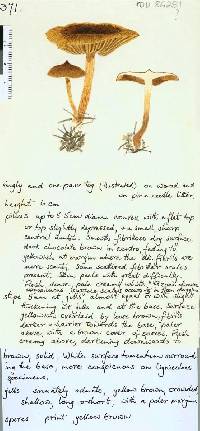 371
singly and one pair tog (illustrated) on wood and
in pine needle litter,
height 6 cm
pileus up to 5.5cm diam convex with a flat top
or top slightly depressed, or a small sharp
central umbo. Smooth fibrillose dry surface,
dark chocolate brown in centre, fading to
yellowish at margin where the dk. fibrils are
more scanty. Some scattered fibrillar scales
present. Skin peels with
Flesh dense, pale cream
stipe 5mm at gills almost equal or with slight
thickening at
yellowish overlaid by lower brown fibrils
darker + hairier towards the base, paler
above, with a brown
creamy above, darkening downwards to
brown, solid. White surface tomentum surround-
ing the base, more conspicuous on lignicolous
specimens.
gills sinuately adnate, yellow brown, crowded
shallow, long + short, with a paler margin
spores print yellow brown